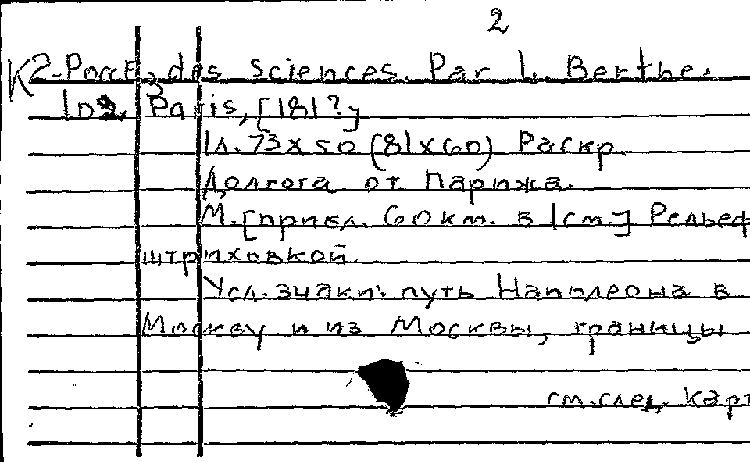 2
des Sciences. Par L. Berthe.
Paris, [181?]
1 л. 73 x 50 (81x60) Раскр.
Долгота от Парижа.
М. [прибл. 60 км. в 1 см.] Рельеф
штриховкой.
Усл. знаки: путь Наполеона в
Москву и из Москвы, границы
см. след. карт